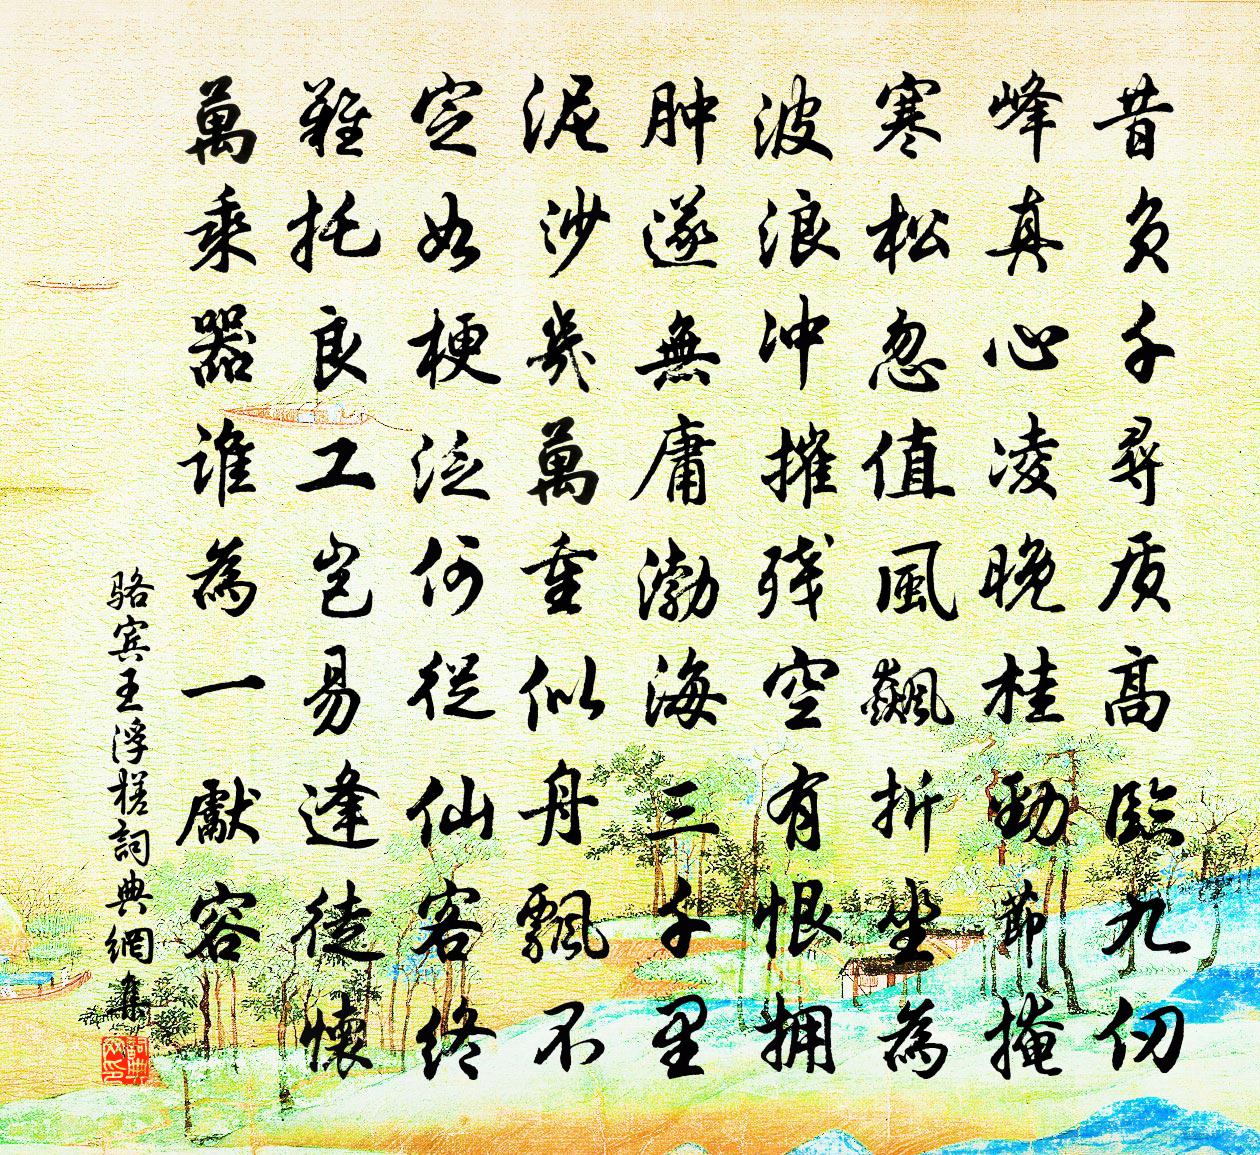 昔负千尋质高臨九仞
峰真心凌晚桂勁節掩
寒松忽值風飆折坐為
波浪冲摧残空有恨拥
肿遂無庸渤海三千里
泥沙幾萬重似舟飄不
定如梗泛何從仙客終
難托良工岂易逢徒懷
萬乘器誰為一獻容
骆宾王浮槎詞典網集